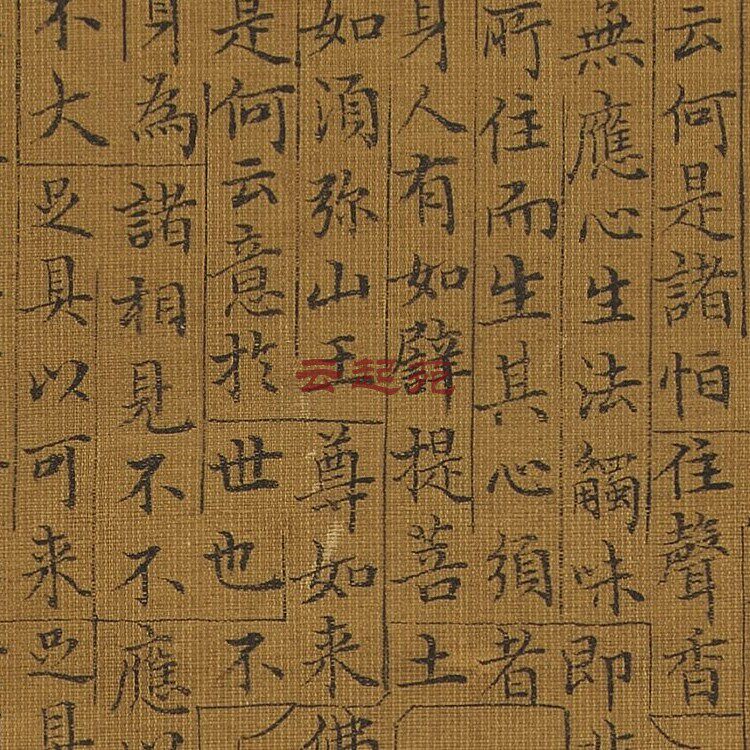 云何是諸怕住聲香
無應心生法觸味即非
所住而生其心須者
身人有如譬提菩土
如須弥山王尊如来佛
是何云意於世也不
身為諸相見不不應以
不大足具以可来足具
云起苑